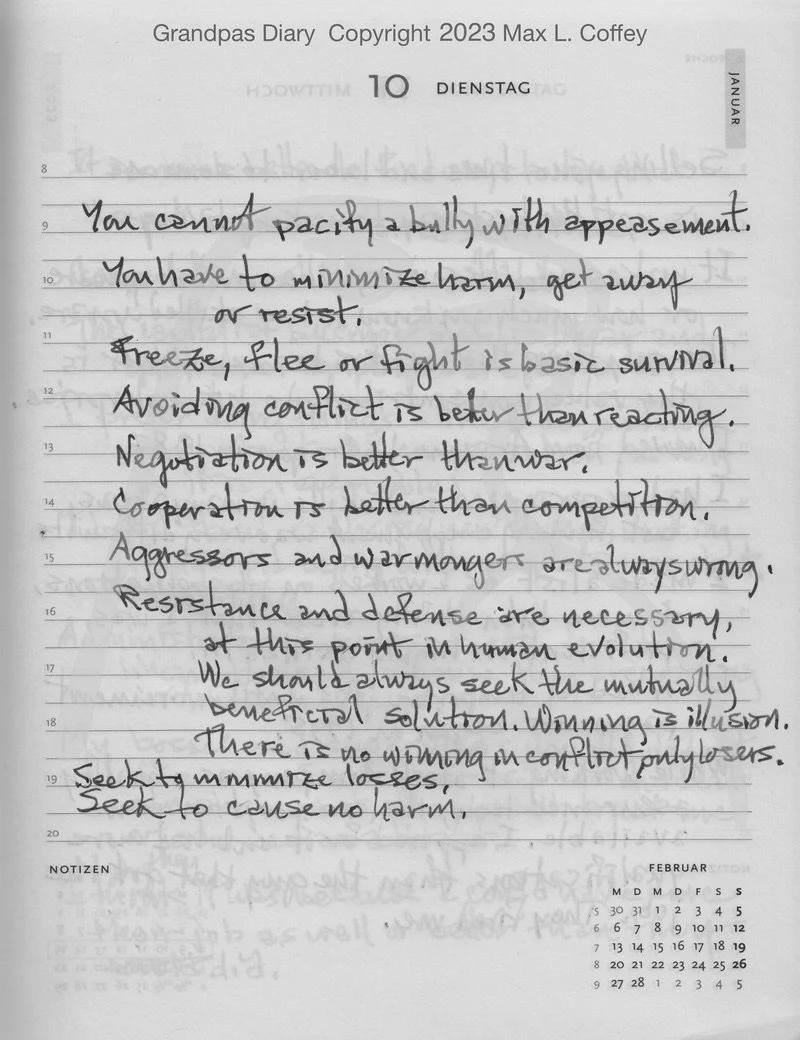 Grandpas Diary Copyright 2023 Max L. Coffey
10 DIENSTAG
JANUAR
8
9 You cannot pacify a bully with appeasement.
10 You have to minimize harm, get away
or resist.
11
Freeze, flee or fight is basic survival.
12 Avoiding conflict is better than reacting.
13 Negotiation is better than war.
14 Cooperation is better than competition.
15 Aggressors and warmongers are always wrong.
16 Resistance and defense are necessary,
at this point in human evolution.
17 We should always seek the mutually
beneficial solution. Winning is illusion.
18
There is no winning in conflict only losers.
19 Seek to minimize losses,
Seek to cause no harm.
20
NOTIZEN
FEBRUAR
M D M D F S S
5 30 31 1 2 3 4 5
6 6 7 8 9 10 11 12
7 13 14 15 16 17 18 19
8 20 21 22 23 24 25 26
9 27 28 1 2 3 4 5